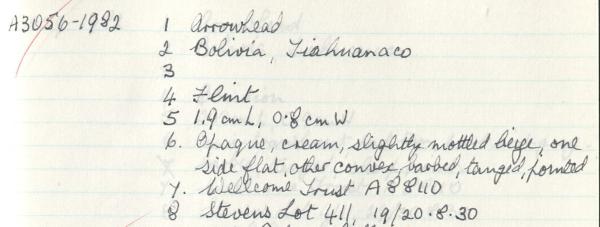 A3056-1982 1 Arrowhead
2 Bolivia, Tiahuanaco
3
4 Flint
5 1.9cm L, 0.8cm W
6. Opaque, cream, slightly mottled beige, one
side flat, other convex, barbed, tanged, pointed
7. Wellcome Trust A 88110
8 Stevens Lot 411, 19/20.8.30